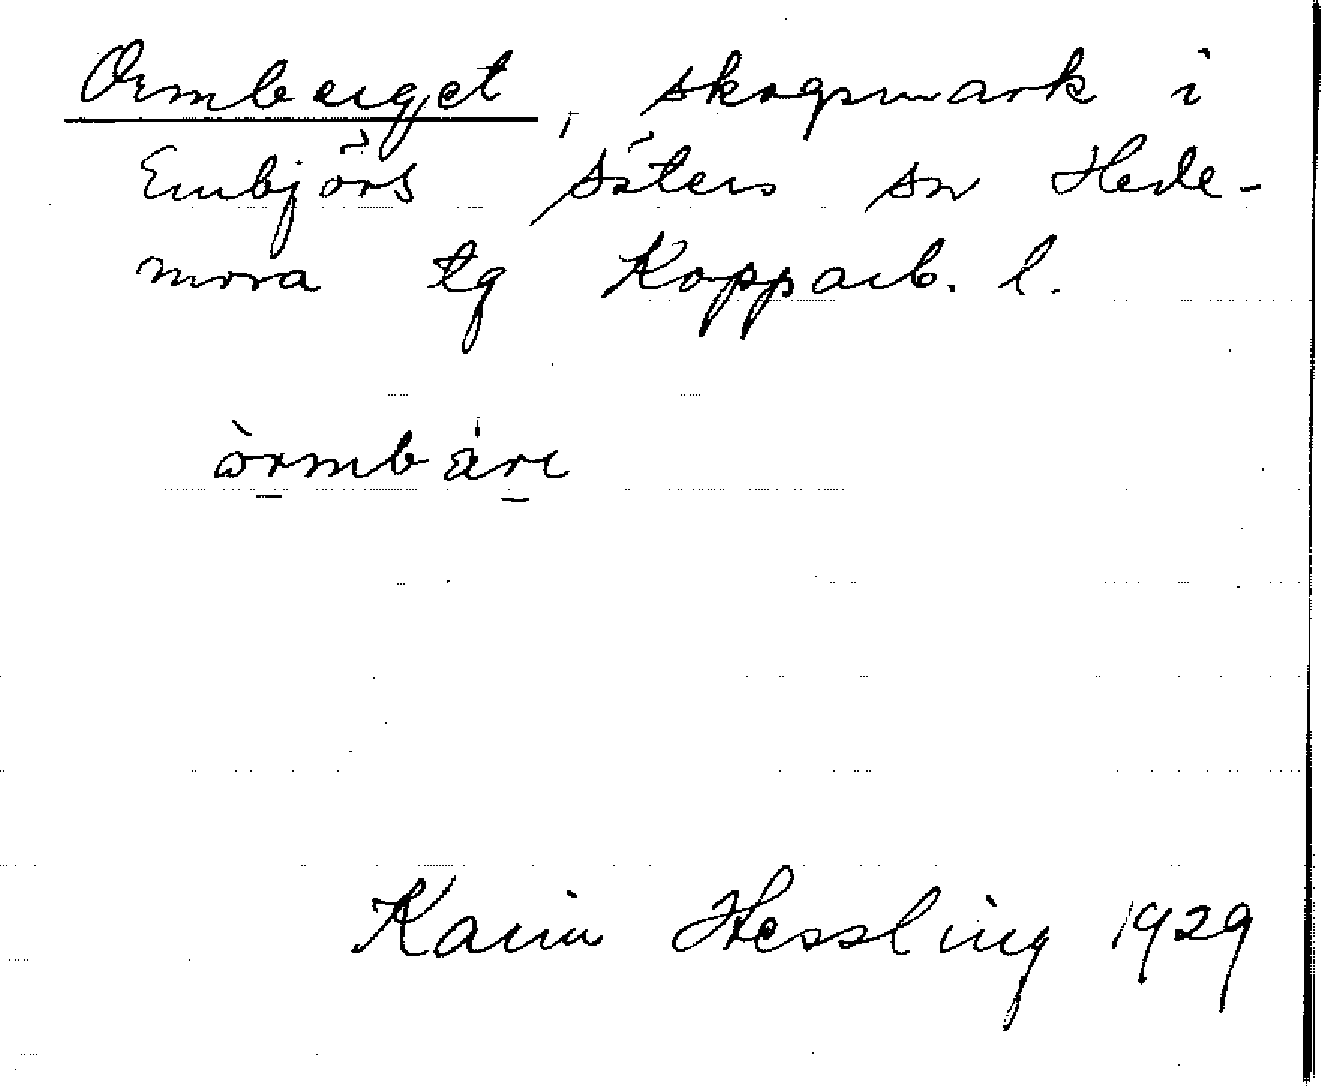 Ormberget, skogsmark i
Enbjörs Säters sn Hede-
mora tg Kopparb. l.
òrmbär̀e
Karin Hessling 1929